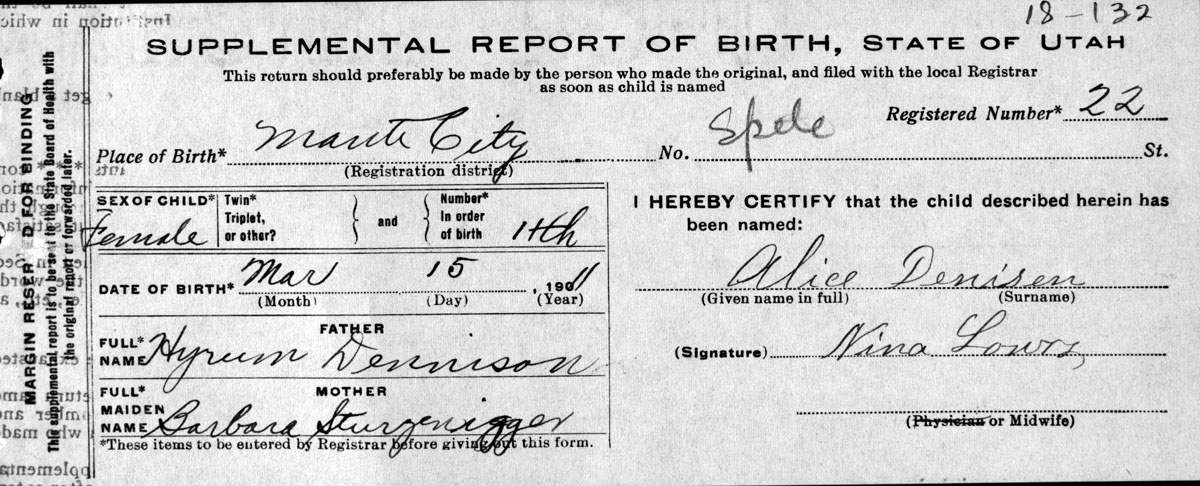 18-132
SUPPLEMENTAL REPORT OF BIRTH, STATE OF UTAH
This return should preferably be made by the person who made the original, and filed with the local Registrar
as soon as child is named
Registered Number* 22
Place of Birth* Manti City No. St.
(Registration district)
MARGIN RESERVED FOR BINDING
This supplemental report is to be sent to the State Board of Health with
the original report or forwarded later.
SEX OF CHILD* Female
Twin* Triplet, or other? } and { Number* In order of birth 11th
DATE OF BIRTH* Mar 15, 1911
(Month) (Day) (Year)
FATHER
FULL* NAME Hyrum Dennison
MOTHER
FULL* MAIDEN NAME Barbara Sturzenigger
*These items to be entered by Registrar before giving out this form.
I HEREBY CERTIFY that the child described herein has
been named:
Alice Denisen
(Given name in full) (Surname)
(Signature) Nina Lowry
(Physician or Midwife)